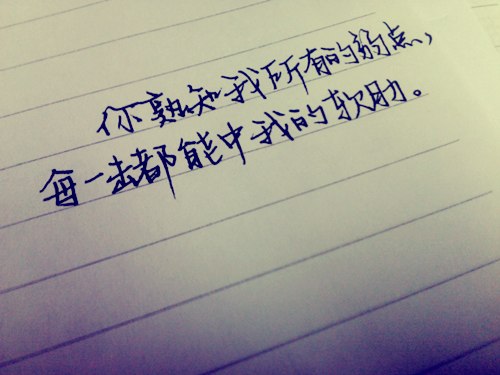 你熟知我所有的弱点,
每一击都能中我的软肋。